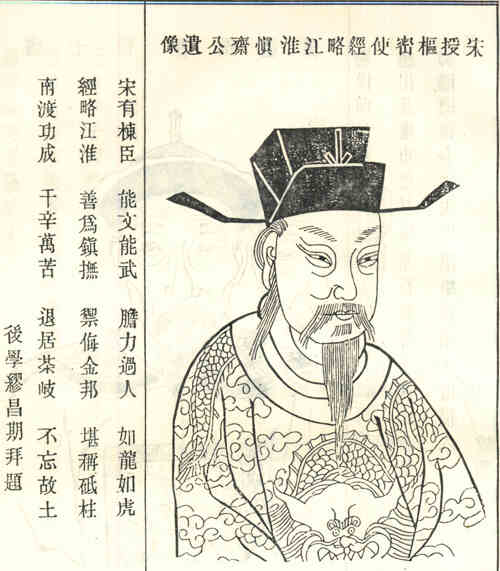 宋授樞密使經略江淮愼齋公遺像
宋有棟臣 能文能武 膽力過人 如龍如虎
經略江淮 善爲鎭撫 禦侮金邦 堪稱砥柱
南渡功成 干辛萬苦 退居茶岐 不忘故土
後學繆昌期拜題